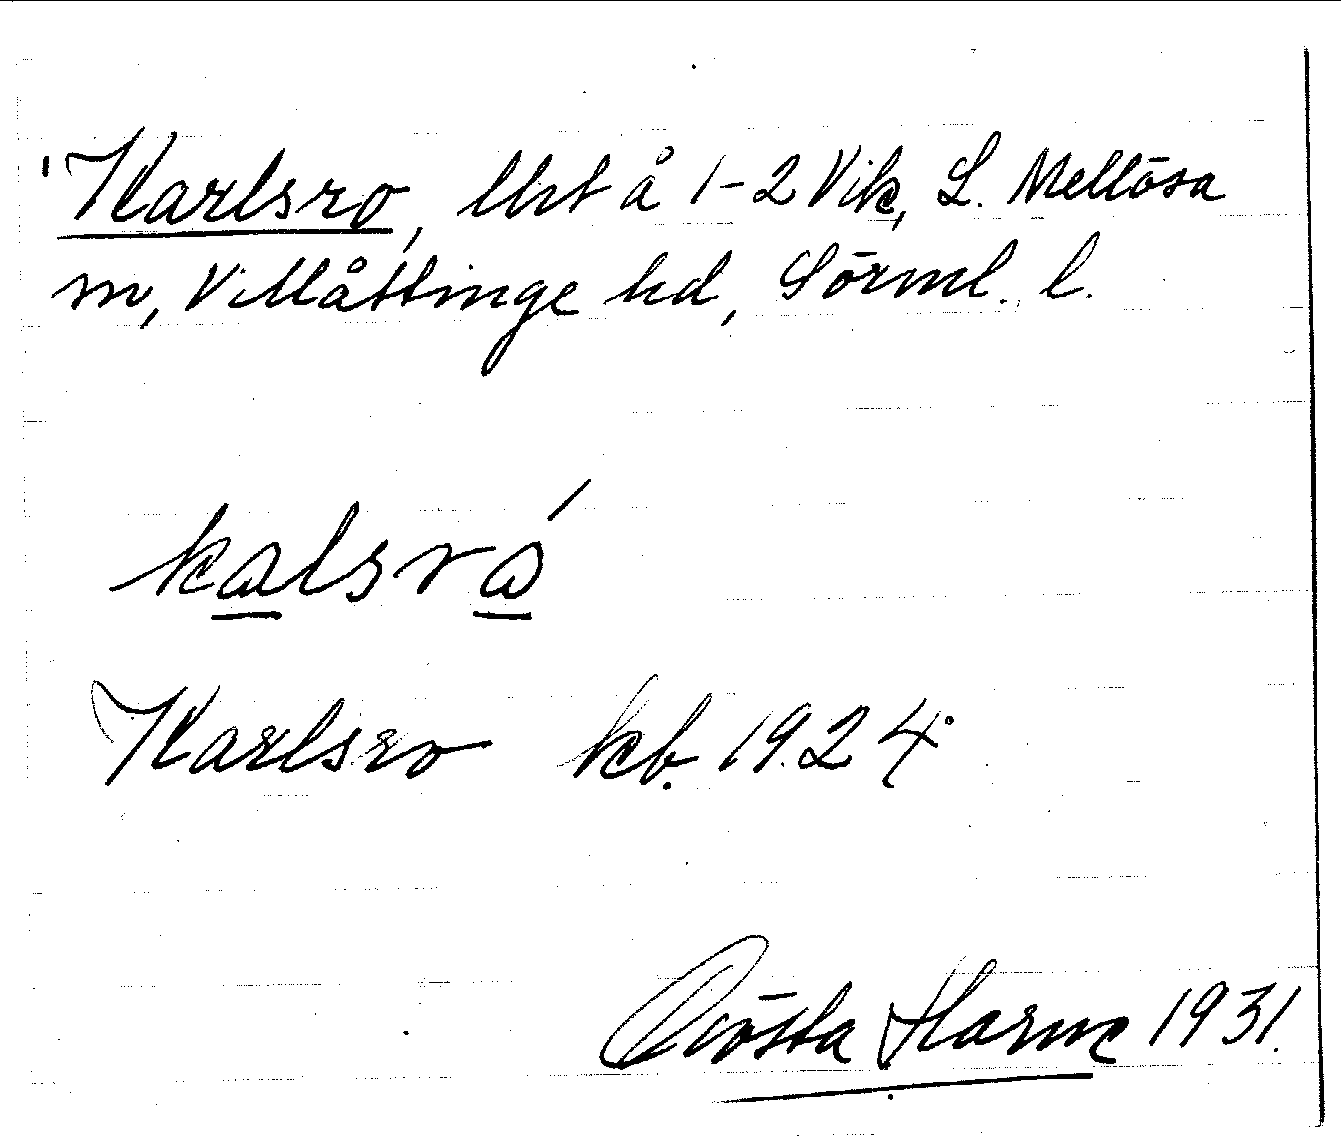 Karlsro, lht å 1-2 Vik, L. Mellösa
sn, Villåttinge hd, Sörml. l.
kalsró
Karlsro kb. 1924
Gösta Harme 1931.